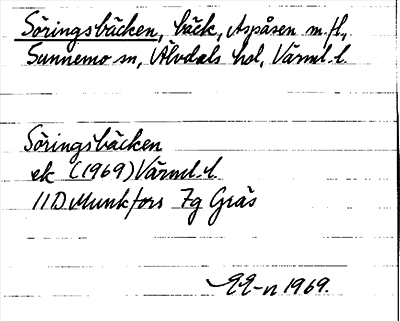 Söringsbäcken, bäck, Aspåsen m.fl.,
Sunnemo sn, Älvdals hd, Värml. l.
Söringsbäcken
ek (1969) Värml. l.
11D Munkfors 7g Gräs
1969.